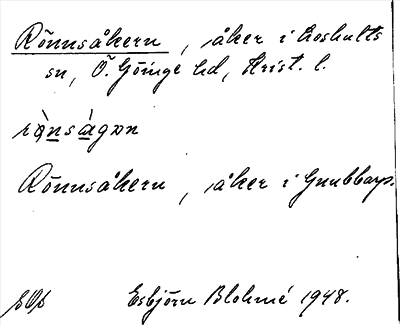 Rönnsåkern, åker i Loshults
sn, Ö. Göinge hd, Krist. l.
Rönnsåkern, åker i Gnubbarp.
Esbjörn Blohmé 1948.